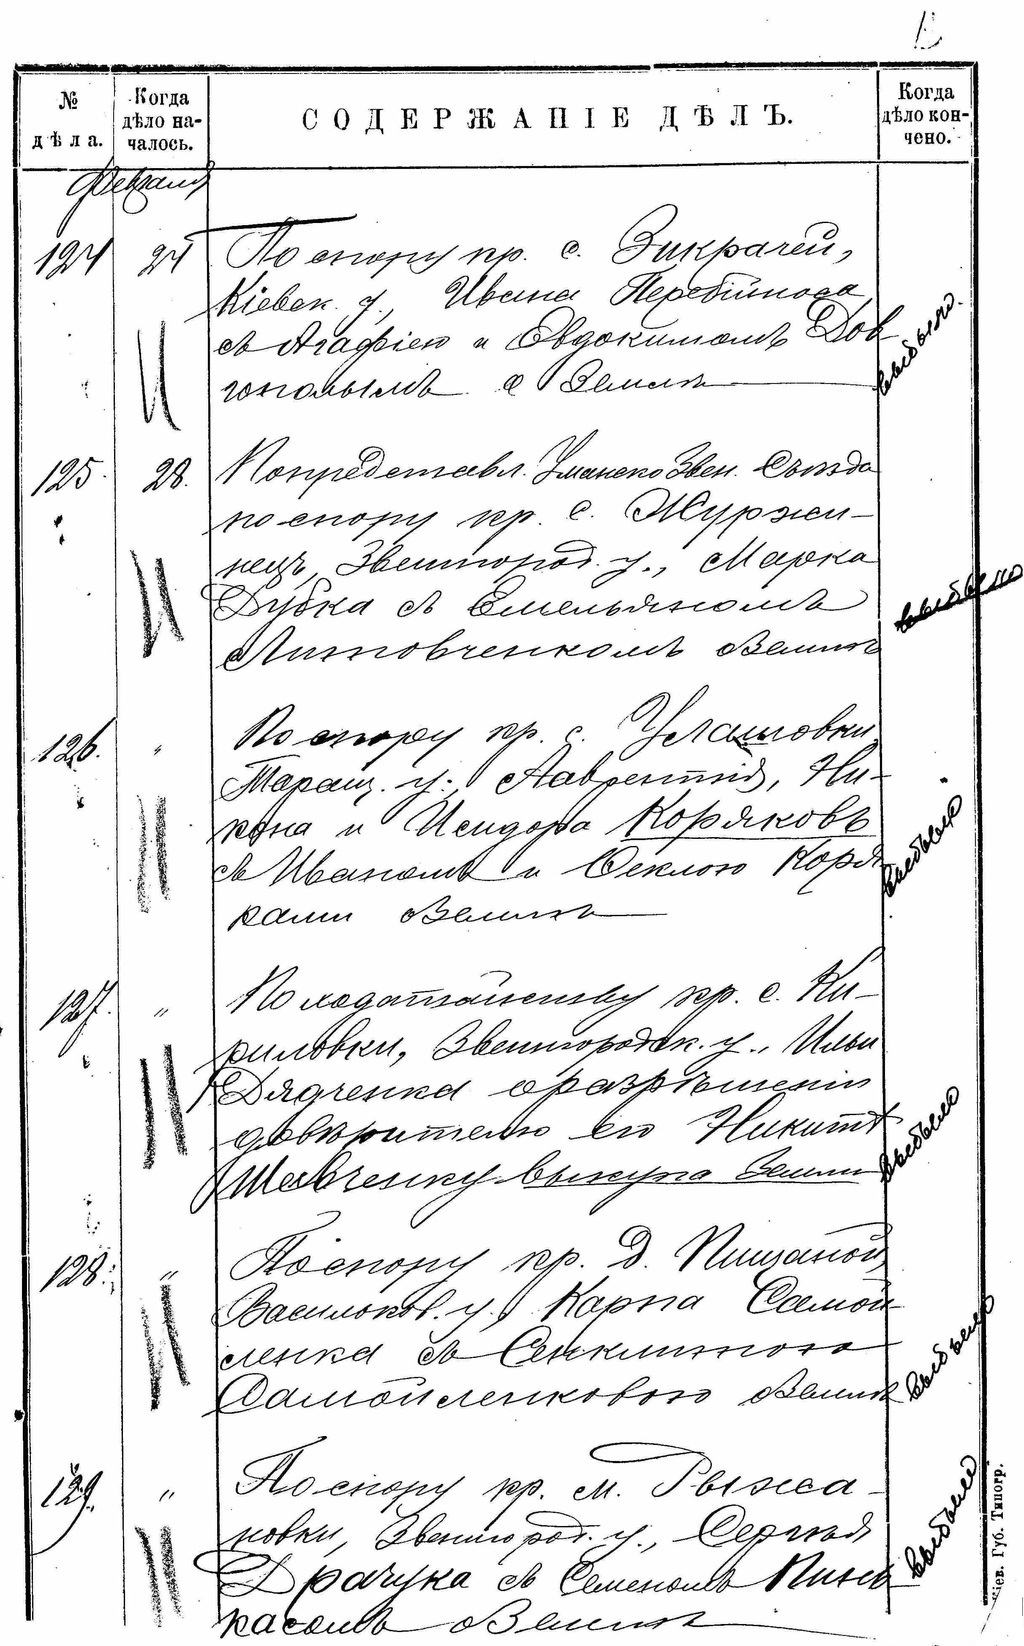 № дѣла.
Когда дѣло началось.
СОДЕРЖАНІЕ ДѢЛЪ.
Когда дѣло кончено.
Февраля
124 24 По спору кр. с. Зикрачей,
Кіевск. у., Ивана Перебійноса
съ Агафіею и Евдокимомъ Дов
гополымъ о землѣ
выбыло.
125. 28. По представл. Уманско Звен. Съѣзда
по спору кр. с. Журжи-
нецъ, Звенигород. у., Марка
Дубка съ Емельяномъ
Литовченкомъ о землѣ
выбыло
126. " По спору кр. с. Улашовки
Таращ. у., Лаврентія, Ни-
кона и Исидора Коряковъ
съ Иваномъ и Феклою Коря
ками о землѣ
выбыло
127. " По ходатайству кр. с. Ки-
риловки, Звенигородск. у., Ильи
Дядченка о разрѣшеніи
довѣрителю его Никитѣ
Шевченку выкупа земли
выбыло
128. " По спору кр. д. Пищаной,
Васильков. у., Карпа Самой
ленка съ Секлитою
Самойленковою о землѣ
выбыло
129. " По спору кр. м. Рыжа-
новки, Звенигород. у., Сергѣя
Драчука съ Семеномъ Пинь
касомъ о землѣ
выбыло
Кіев. Губ. Типогр.